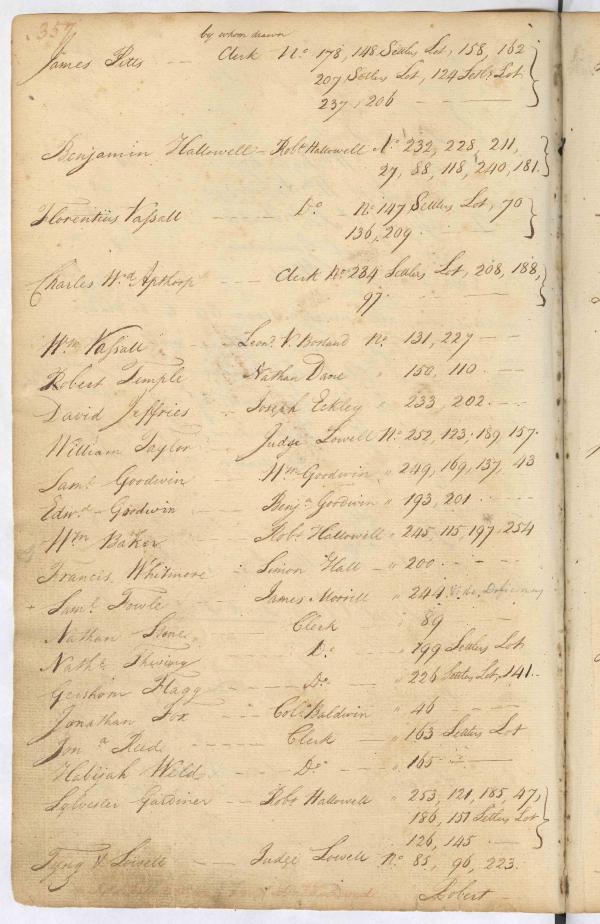 357
by whom drawn
James Pitts -- Clerk No. 178, 148 Settlers Lot, 158, 162
207 Settlers Lot, 124 Settlrs Lot
237, 206
Benjamin Hallowell - Robt Hallowell No. 232, 228, 211,
27, 88, 118, 240, 181.
Florentius Vassall ---- Do - No. 147 Settlers Lot, 70
136, 209
Charles Wd Apthorp --- Clerk No. 284 Settlers Lot, 208, 188,
97.
Wm Vassall - Leond V. Borland No. 131, 227 --
Robert Temple Nathan Dane " 150, 110 --
David Jeffries -- Joseph Eckley " 233, 202 --
William Taylor Judge Lowell No. 252, 123, 189, 157.
Saml Goodwin Wm Goodwin " 249, 169, 137, 43
Edwd Goodwin -- Benja Goodwin " 193, 201 --
Wm Baker Robt Hallowell " 245, 115, 197, 254
Francis Whitmore - Simon Hall - " 200 ---
Saml Fowle - James Morrill " 244 Vide Deficiency
Nathan Stone - Clerk " 89 --
Nathl Thwing -- Do " 199 Settlers Lot
Gershom Flagg --- Do - " 226 Settlers Lot, 141 --
Jonathan Fox -- Coll Baldwin " 46 --
Jona Reed -- Clerk - " 163 Settlers Lot
Habijah Weld -- Do -- " 165 --
Sylvester Gardiner -- Robt Hallowell " 253, 121, 185, 47,
186, 151 Settlers Lot
126, 145
Tyng & Lowell -- Judge Lowell No. 85, 96, 223.
Robert